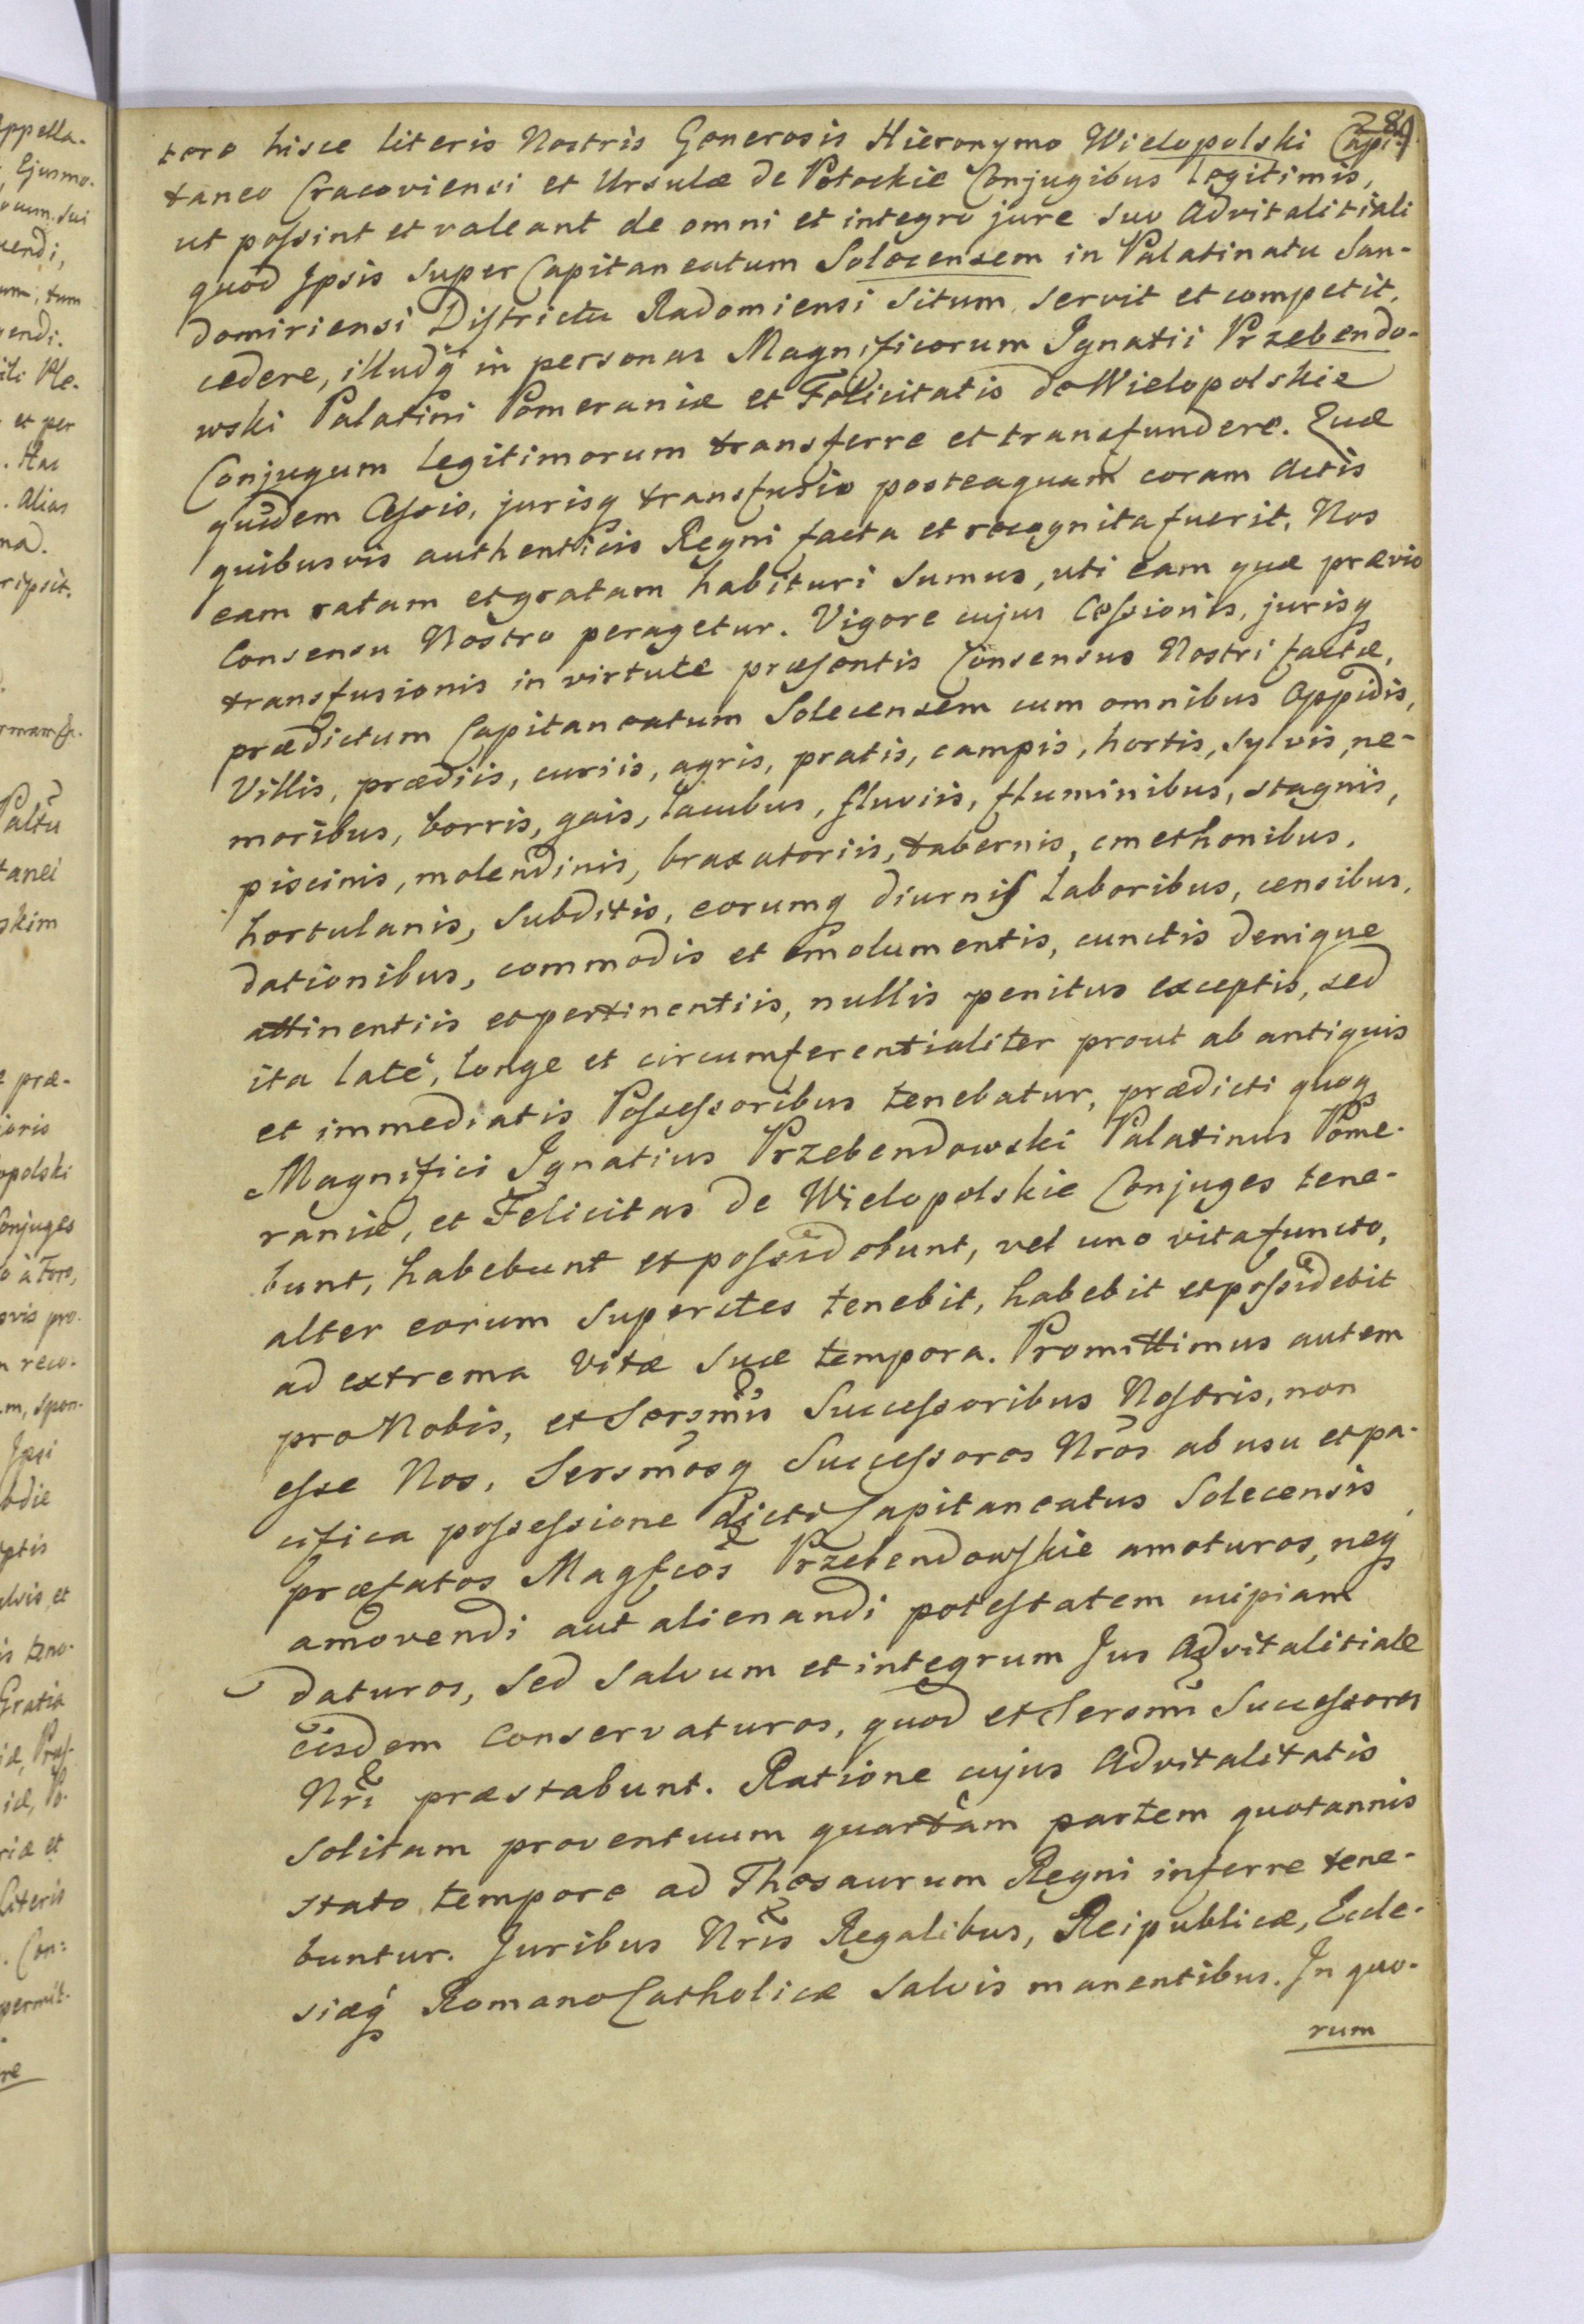 289.
tere hisce literis Nostris Generosis Hieronymo Wielopolski Capi-
taneo Cracoviensi et Ursulæ de Potockie Conjugibus Legitimis,
ut possint et valeant de omni et integro jure suo Advitalitiali
quod Ipsis super Capitaneatum Solecensem in Palatinatu San-
domiriensi Districtu Radomiensi situm, servit et competit,
cedere, illudq in personas Magnificorum Ignatii Przebendo-
wski Palatini Pomeraniæ et Felicitatis de Wielopolskie
Conjugum Legitimorum transferre et transfundere. Quæ
quidem Cessio, jurisq transfusio posteaquam coram Actis
quibusvis authenticis Regni facta et recognita fuerit, Nos
eam ratam et gratam habituri sumus, uti eam quæ prævio
Consensu Nostro peragetur. Vigore cujus Cessionis, jurisq
transfusionis in virtute præsentis Consensus Nostri factæ,
prædictum Capitaneatum Solecensem cum omnibus Oppidis,
Villis, prædiis, curiis, agris, pratis, campis, hortis, sylvis, ne-
moribus, borris, gais, lacubus, fluviis, fluminibus, stagnis,
piscinis, molendinis, braxatoriis, tabernis, cmethonibus,
hortulanis, subditis, eorumq diurnis laboribus, censibus,
dationibus, commodis et emolumentis, cunctis denique
attinentiis et pertinentiis, nullis penitus exceptis, sed
ita latè, longe et circumferentialiter prout ab antiquis
et immediatis Possessoribus tenebatur, prædicti quoq
Magnifici Ignatius Przebendowski Palatinus Pome-
raniæ, et Felicitas de Wielopolskie Conjuges tene-
bunt, habebunt et possidebunt, vel uno vita functo,
alter eorum superstes tenebit, habebit et possidebit
ad extrema Vitæ suæ tempora. Promittimus autem
pro Nobis, et Sersmis Successoribus Nostris, non
esse Nos, Sersmosq Successores Nros ab usu et pa-
cifica possessione dicti Capitaneatus Solecensis
præfatos Magfcos Przebendowskie amoturos, neq
amovendi aut alienandi potestatem cuipiam
daturos, sed salvum et integrum Jus Advitalitiale
eisdem conservaturos, quod et Sersmi Successores
Nri præstabunt. Ratione cujus Advitalitatis
solitam proventuum quartam partem quotannis
stato tempore ad Thesaurum Regni inferre tene-
buntur. Juribus Nris Regalibus, Reipublicæ, Eccle-
siæq Romano Catholicæ salvis manentibus. In quo-
rum